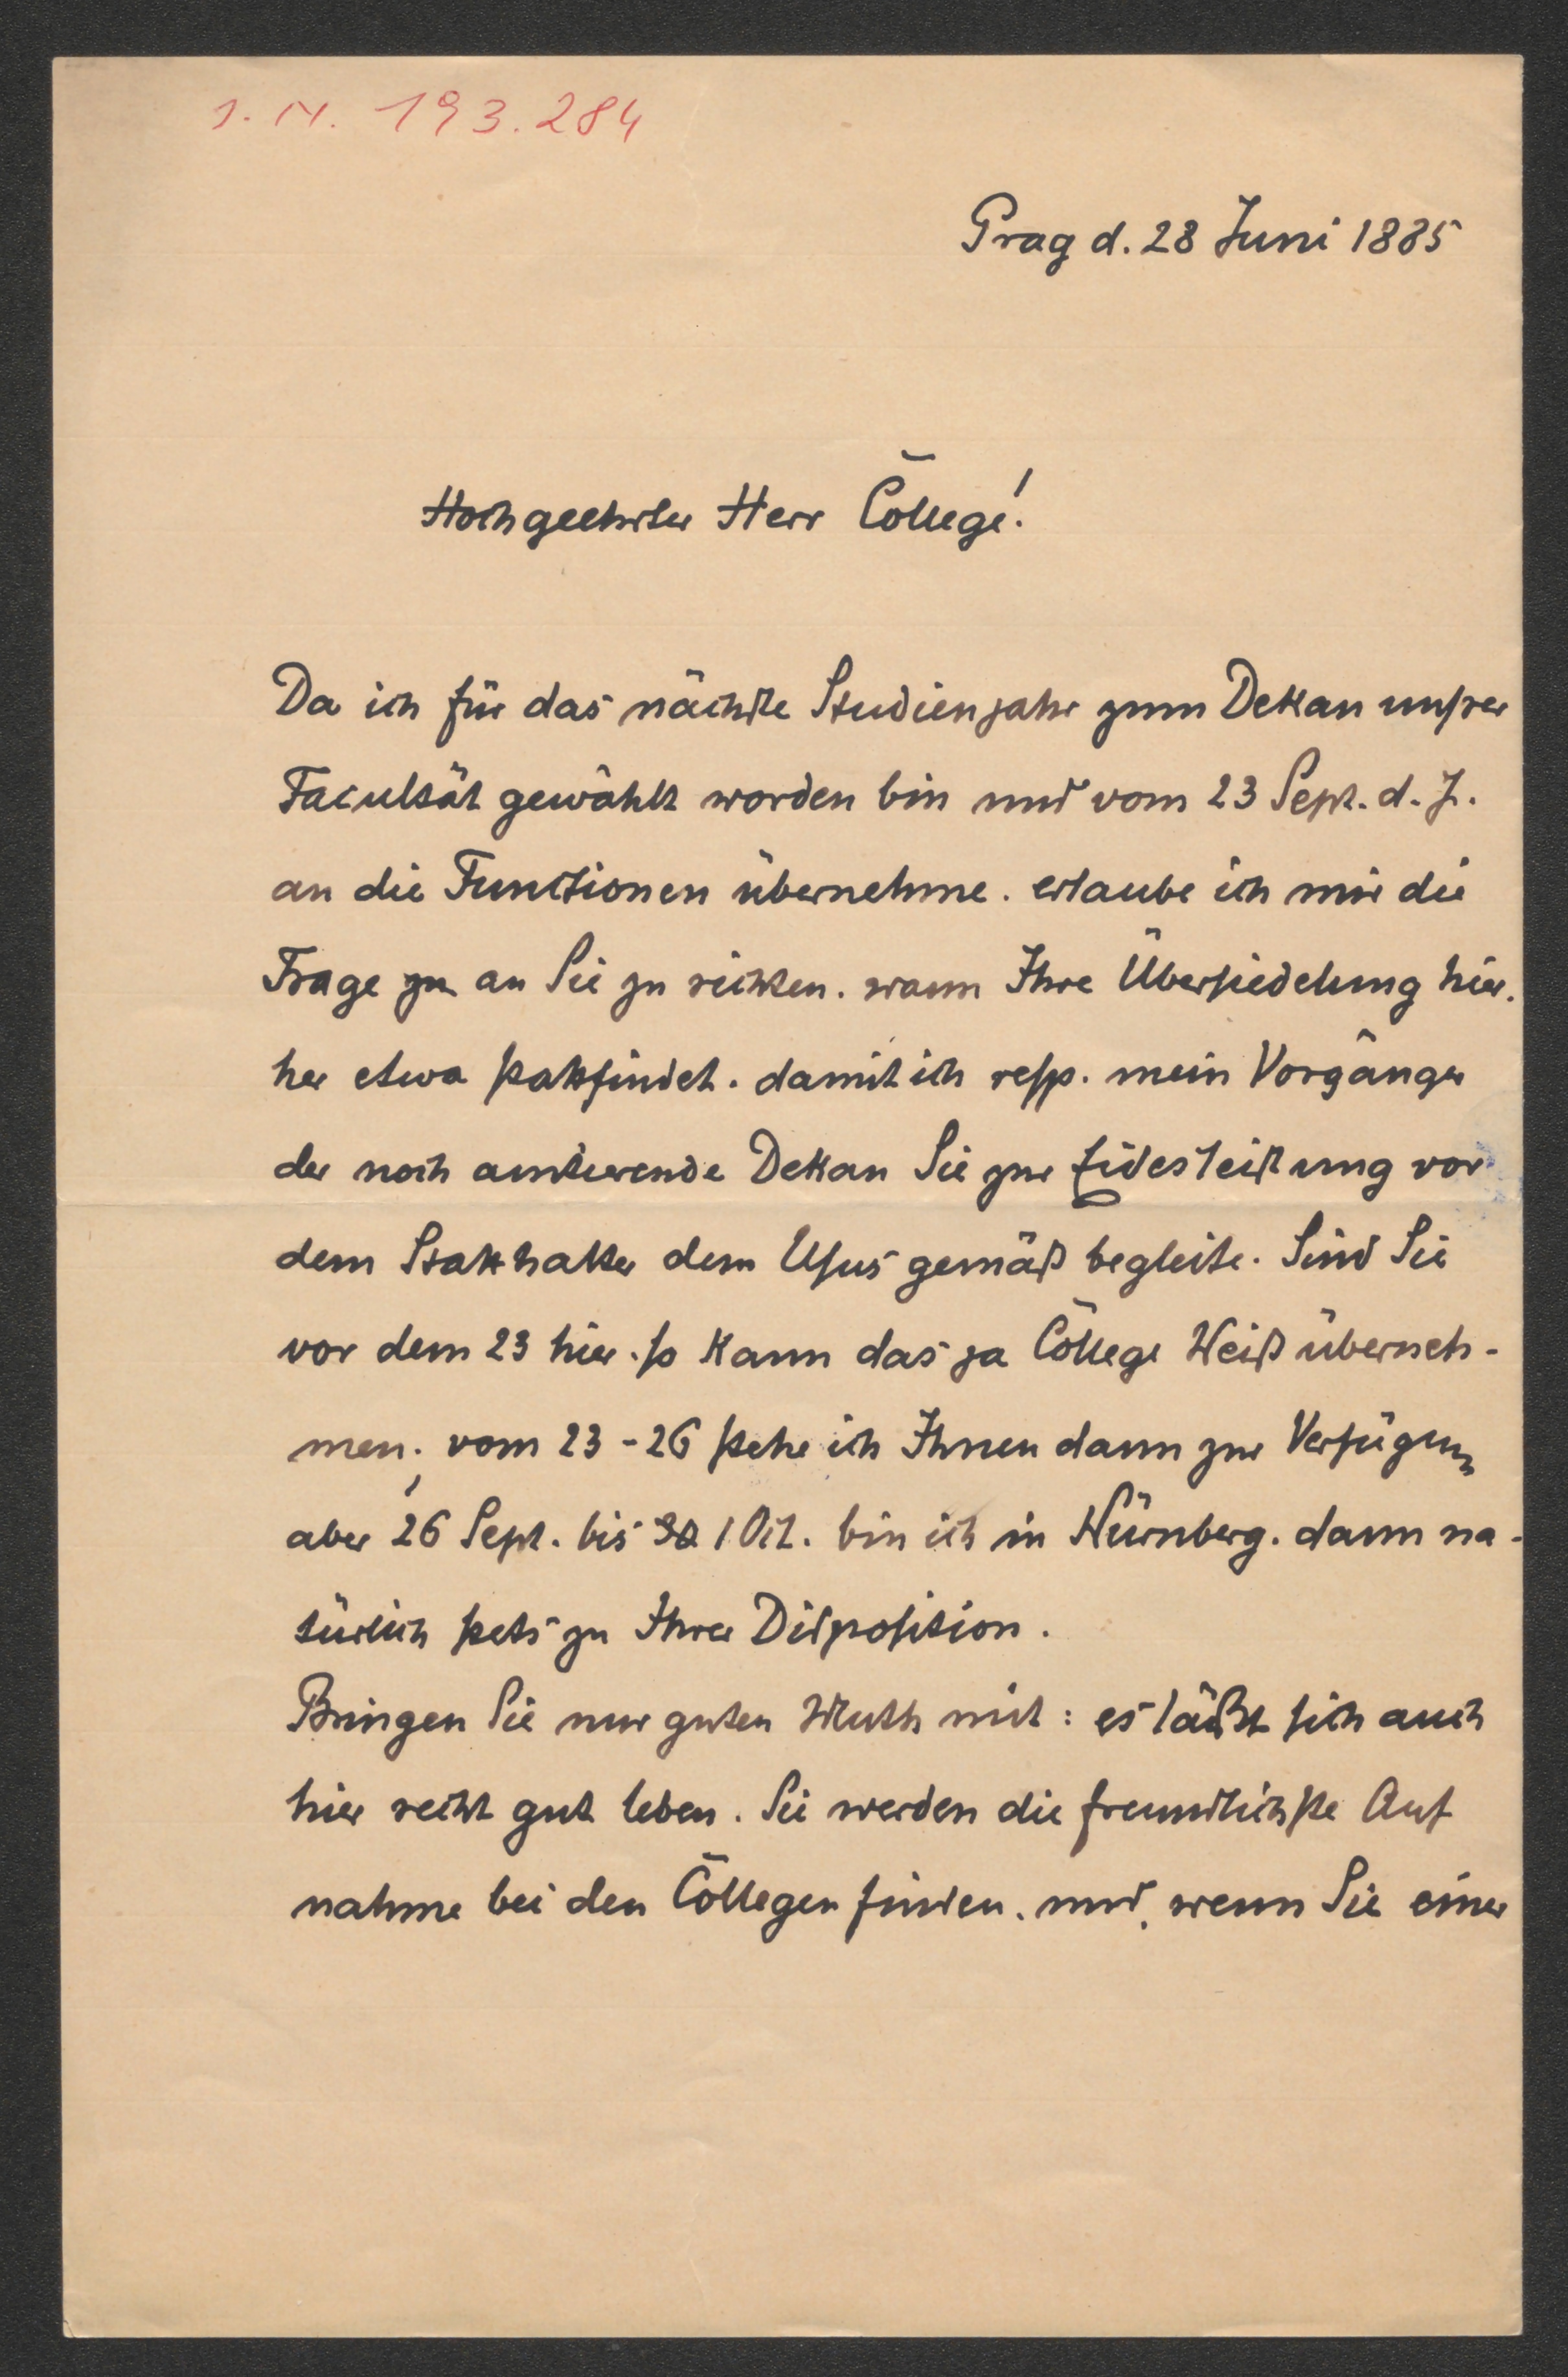 I. N. 193.284
Prag d. 28 Juni 1885
Hochgeehrter Herr College!
Da ich für das nächste Studienjahr zum Dekan unsrer
Facultät gewählt worden bin und vom 23 Sept. d. J.
an die Functionen übernehme. erlaube ich mir die
Frage zu an Sie zu richten. wann Ihre Übersiedelung hier.
her etwa stattfindet. damit ich resp. mein Vorgänger
der noch amtierende Dekan Sie zur Eidesleistung vor
dem Statthalter dem Usus gemäß begleite. Sind Sie
vor dem 23 hier. so kann das ja College Weiß überneh-
men; vom 23-26 stehe ich Ihnen dann zur Verfügung
aber 26 Sept. bis 30 1 Oct. bin ich in Nürnberg. dann na-
türlich stets zu Ihrer Disposition.
Bringen Sie nur guten Muth mit: es läßt sich auch
hier recht gut leben. Sie werden die freundlichste Auf
nahme bei den Collegen finden. und, wenn Sie einer